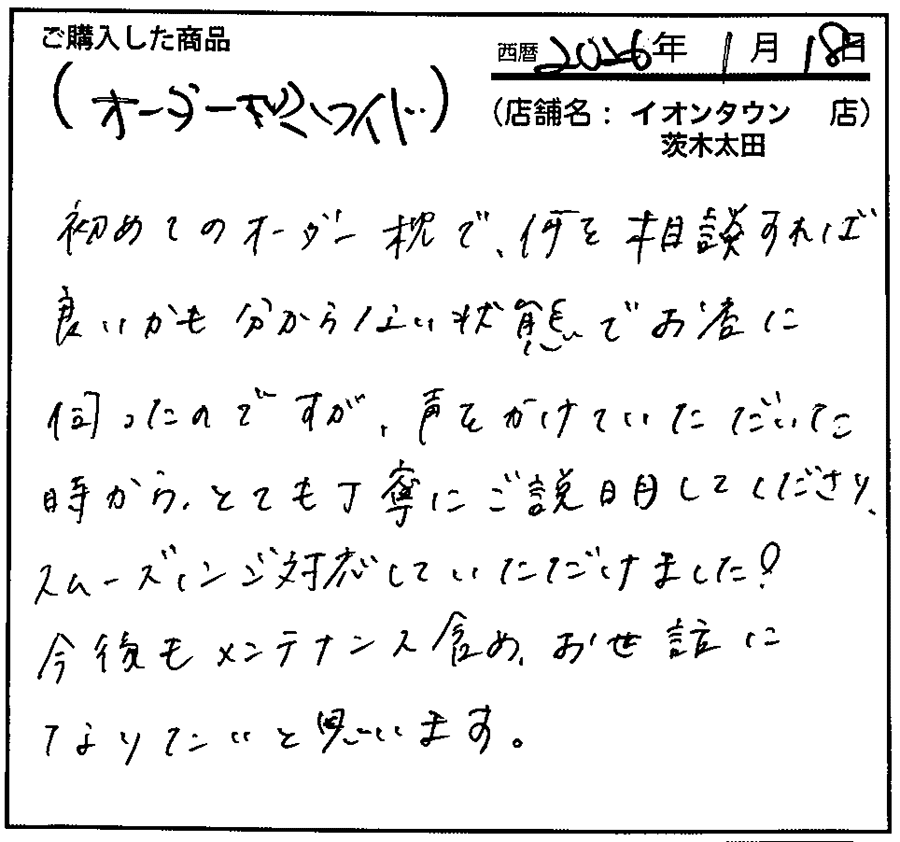 ご購入した商品
西暦 2026年 1月 18日
(オーダー枕ワイド)
(店舗名：イオンタウン 店)
茨木太田
初めてのオーダー枕で、何を相談すれば
良いかも分からない状態でお店に
伺ったのですが、声をかけていただいた
時から、とても丁寧にご説明してくださり、
スムーズにご対応していただけました！
今後もメンテナンス含め、お世話に
なりたいと思います。